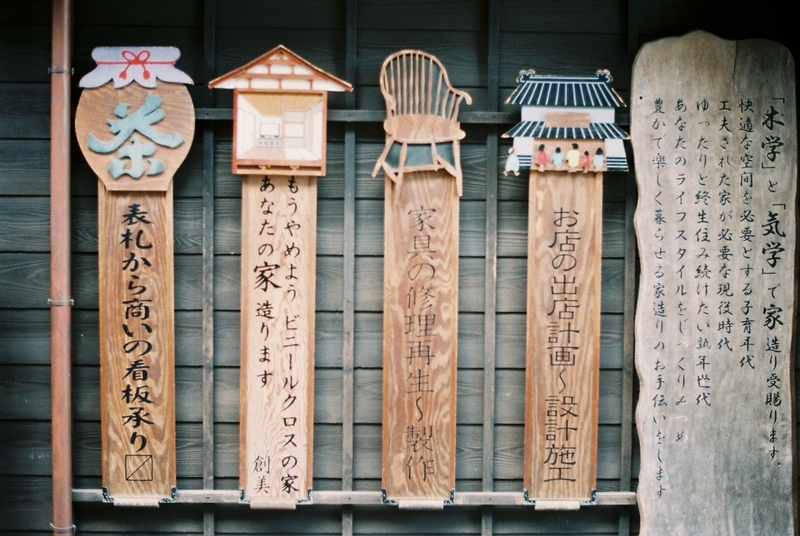 「木学」と「気学」で家造り受賜ります。
快適な空間を必要とする子育年代
工夫された家が必要な現役時代
ゆったりと終生住み続けたい熟年世代
あなたのライフスタイルをじっくりみつめ
豊かで楽しく暮らせる家造りのお手伝いをします
お店の出店計画〜設計施工
家具の修理再生〜製作
もうやめよう ビニールクロスの家
あなたの家造ります
創美
茶
表札から商いの看板承り〼